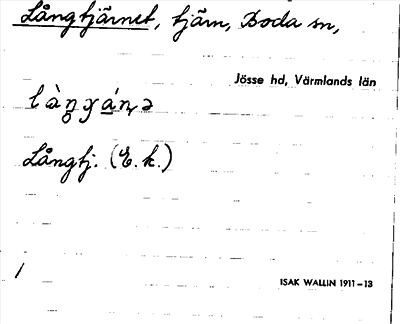 Långtjärnet, tjärn, Boda sn,
Jösse hd, Värmlands län
Långtj. (E. k.)
/
ISAK WALLIN 1911–13